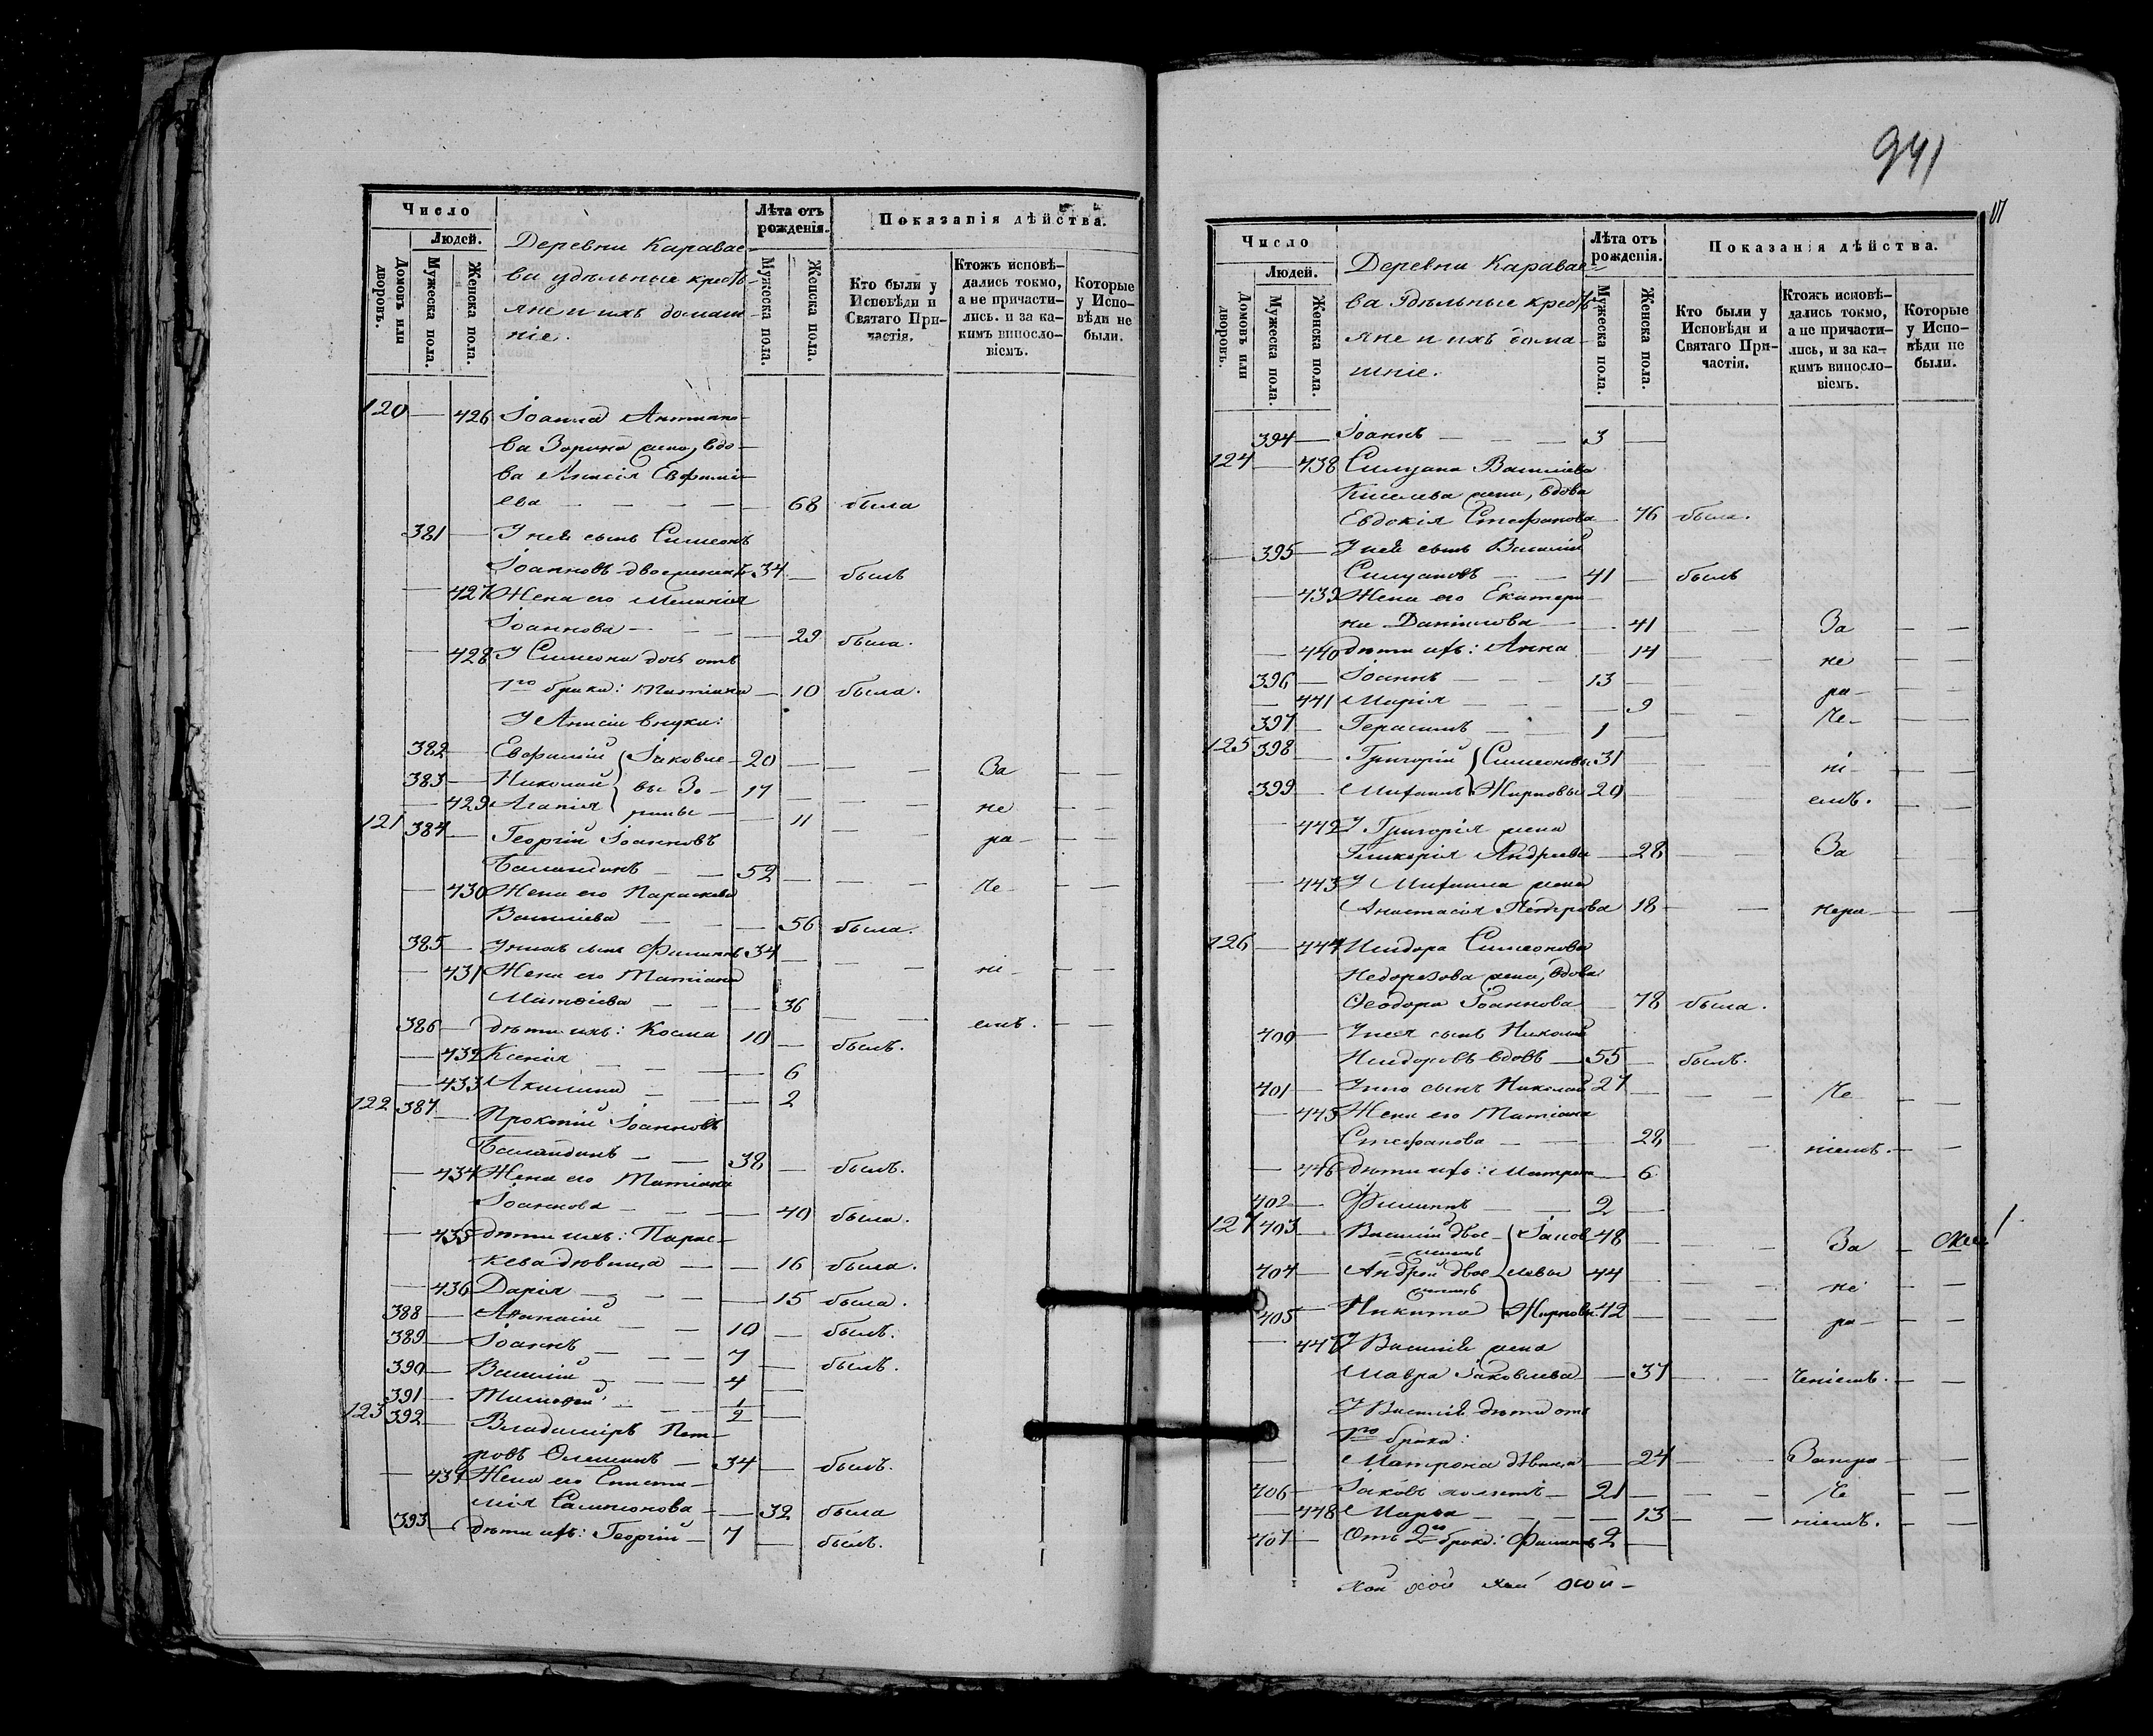 Число
Людей.
Домовъ или дворовъ.
Мужеска пола.
Женска пола.
Деревни Каравае-
ва удѣльные кресть-
яне и ихъ домаш-
ніе.
Лѣта отъ рожденія.
Мужеска пола.
Женска пола.
Показанія дѣйства.
Кто были у Исповѣди и Святаго При-частія.
Ктожъ исповѣ-дались токмо, а не причасти-лись. и за ка-кимъ винословіемъ.
Которые у Испо-вѣди не были.
120 — 426 Іоанна Антоно-
ва Зорина жена, вдо-
ва Анисія Евфимі-
ева — 68 была
381 — У нея сынъ Симеонъ
Іоанновъ двоеженецъ 34 — былъ
— 427 Жена его Меланія
Іоаннова — 29 была.
— 428 У Симеона дочь отъ
1го брака: Татіана — 10 была.
У Анисіи внуки:
382 — Евфимій Іаковле- 20 — — За — —
383 — Николай вы Зо- 17 — — не — —
— 429 Агапія рины — 11 — — ра- — —
121 384 — Георгій Іоанновъ
Баландинъ — 52 — — че- — —
— 430 Жена его Параскева
Васильева — 56 была.
385 — У нихъ сынъ Филиппъ 34 — — ні- — —
— 431 Жена его Татіана
Матѳіева — 36 — — емъ. — —
386 — дѣти ихъ: Косма 10 — былъ.
— 432 Ксенія — 6
— 433 Акилина — 2
122 387 — Прокопій Іоанновъ
Баландинъ — 38 — былъ.
— 434 Жена его Татіана
Іоаннова — 40 была.
— 435 дѣти ихъ: Парас-
кева дѣвица — 16 была.
— 436 Дарія — 15 была.
388 — Аѳанасій — 10 — былъ.
389 — Іоаннъ — 7 — былъ.
390 — Василій — 4 —
391 — Тимоѳей — 1/2 —
123 392 — Владиміръ Пет-
ровъ Олешинъ — 34 — былъ.
— 437 Жена его Еписти-
мія Сампсонова — 32 была
393 — дѣти ихъ: Георгій — 7 — былъ.
941
Число
Людей.
Домовъ или дворовъ.
Мужеска пола.
Женска пола.
Деревни Каравае-
ва Удѣльные кресть-
яне и ихъ дома-
шніе.
Лѣта отъ рожденія.
Мужеска пола.
Женска пола.
Показанія дѣйства.
Кто были у Исповѣди и Святаго При-частія.
Ктожъ исповѣ-дались токмо, а не причасти-лись, и за ка-кимъ винословіемъ.
Которые у Испо-вѣди не были.
394 — Іоаннъ — 3 —
124 — 438 Силуана Васильева
Киселева жена, вдова
Евдокія Стефанова — 76 была.
— 395 — У нея сынъ Василій
Силуановъ — 41 — былъ
— 439 Жена его Екатери-
на Данилова — 41 — — За — —
— 440 дѣти ихъ: Анна — 14 — — не — —
396 — Іоаннъ — 13 — — ра- — —
— 441 Марія — 9 — — че- — —
397 — Герасимъ — 1 —
125 398 — Григорій Симеоновы 31 — — ні- — —
399 — Михаилъ Жирновы 20 — — емъ. — —
— 442 У Григорія жена
Гликерія Андреева — 28 — — За — —
— 443 У Михаила жена
Анастасія Петрова 18 — — нера- — —
126 — 444 Исидора Симеонова
Недорезова жена, вдова
Ѳеодора Іоаннова — 78 была.
400 — У нея сынъ Николай
Исидоровъ вдовъ — 55 — былъ.
401 — У него сынъ Николай 27 — — че — —
— 445 Жена его Татіана
Стефанова — 28 — — ніемъ. — —
— 446 дѣти ихъ: Матрона — 6
402 — Филиппъ — 2 —
127 403 — Василій двое- Іаков- 48 — — За — —
женецъ
404 — Андрей двое- левы 44 — — не — —
женецъ
405 — Никита Жирновы 42 — — ра- — —
— 447 У Василія жена
Мавра Іаковлева — 37 — — ченіемъ. — —
У Василія дѣти отъ
1го брака:
— Матрона дѣвица — 24 — — Занера- — —
406 — Іаковъ холостъ — 21 — — че — —
— 448 Марѳа — 13 — — ніемъ. — —
407 — Отъ 2го брака: Филиппъ 2 —